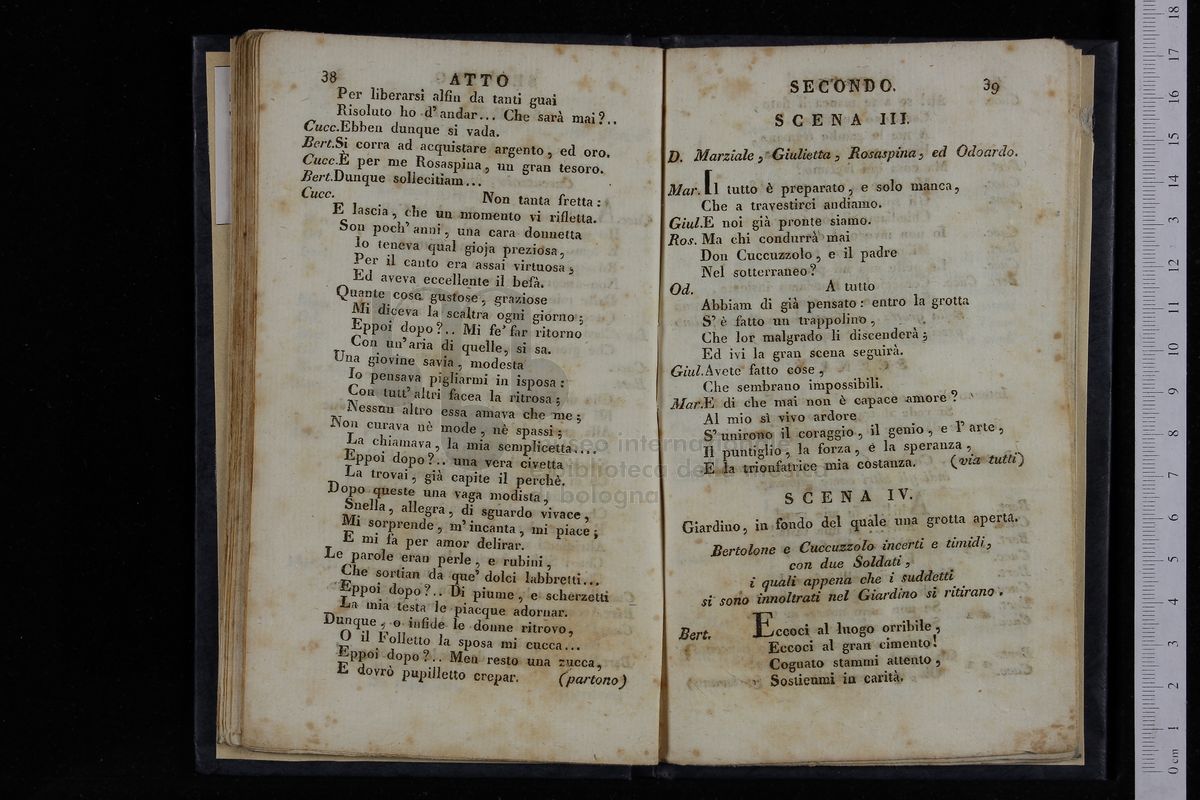 38 ATTO
Per liberarsi alfin da tanti guai
Risoluto ho d'andar... Che sarà mai?..
Cucc. Ebben dunque si vada.
Bert. Si corra ad acquistare argento, ed oro.
Cucc. È per me Rosaspina, un gran tesoro.
Bert. Dunque sollecitiam...
Cucc. Non tanta fretta:
E lascia, che un momento vi rifletta.
Son poch' anni, una cara donnetta
Io teneva qual gioja preziosa,
Per il canto era assai virtuosa,
Ed aveva eccellente il befà.
Quante cose gustose, graziose
Mi diceva la scaltra ogni giorno;
Eppoi dopo?.. Mi fe' far ritorno
Con un' aria di quelle, si sa.
Una giovine savia, modesta
Io pensava pigliarmi in isposa:
Con tutt' altri facea la ritrosa;
Nessun altro essa amava che me;
Non curava nè mode, nè spassi;
La chiamava, la mia semplicetta....
Eppoi dopo?.. una vera civetta
La trovai, già capite il perchè.
Dopo queste una vaga modista,
Snella, allegra, di sguardo vivace,
Mi sorprende, m' incanta, mi piace;
E mi fa per amor delirar.
Le parole eran perle, e rubini,
Che sortian da que' dolci labbretti...
Eppoi dopo?.. Di piume, e scherzetti
La mia testa le piacque adornar.
Dunque, o infide le donne ritrovo,
O il Folletto la sposa mi cucca...
Eppoi dopo?.. Men resto una zucca,
E dovrò pupilletto crepar. (partono)
SECONDO. 39
SCENA III.
D. Marziale, Giulietta, Rosaspina, ed Odoardo.
Mar. Il tutto è preparato, e solo manca,
Che a travestirci andiamo.
Giul. E noi già pronte siamo.
Ros. Ma chi condurrà mai
Don Cuccuzzolo, e il padre
Nel sotterraneo?
Od. A tutto
Abbiam di già pensato: entro la grotta
S' è fatto un trappolino,
Che lor malgrado li discenderà;
Ed ivi la gran scena seguirà.
Giul. Avete fatto cose,
Che sembrano impossibili.
Mar. E di che mai non è capace amore?
Al mio sì vivo ardore
S' unirono il coraggio, il genio, e l' arte,
Il puntiglio, la forza, e la speranza,
E la trionfatrice mia costanza. (via tutti)
SCENA IV.
Giardino, in fondo del quale una grotta aperta.
Bertolone e Cuccuzzolo incerti e timidi,
con due Soldati,
i quali appena che i suddetti
si sono innoltrati nel Giardino si ritirano.
Bert. Eccoci al luogo orribile,
Eccoci al gran cimento!
Cognato stammi attento,
Sostienmi in carità.
museo internazionale
biblioteca della musica
bologna
0 cm 1 2 3 4 5 6 7 8 9 10 11 12 13 14 15 16 17 18